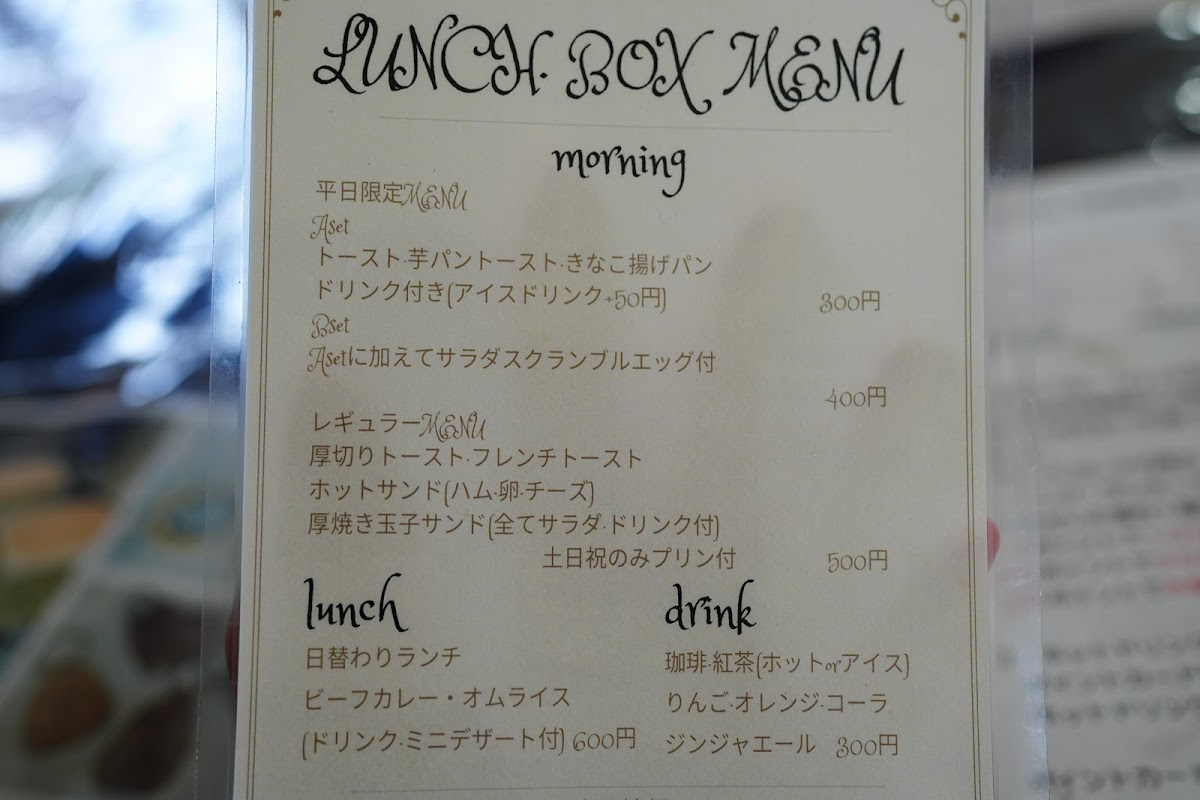 LUNCH BOX MENU
morning
平日限定MENU
Aset
トースト·芋パントースト·きなこ揚げパン
ドリンク付き(アイスドリンク+50円) 300円
Bset
Asetに加えてサラダスクランブルエッグ付
400円
レギュラーMENU
厚切りトースト·フレンチトースト
ホットサンド(ハム·卵·チーズ)
厚焼き玉子サンド(全てサラダ·ドリンク付)
土日祝のみプリン付 500円
lunch
日替わりランチ
ビーフカレー・オムライス
(ドリンク·ミニデザート付) 600円
drink
珈琲·紅茶(ホットorアイス)
りんご·オレンジ·コーラ
ジンジャエール 300円